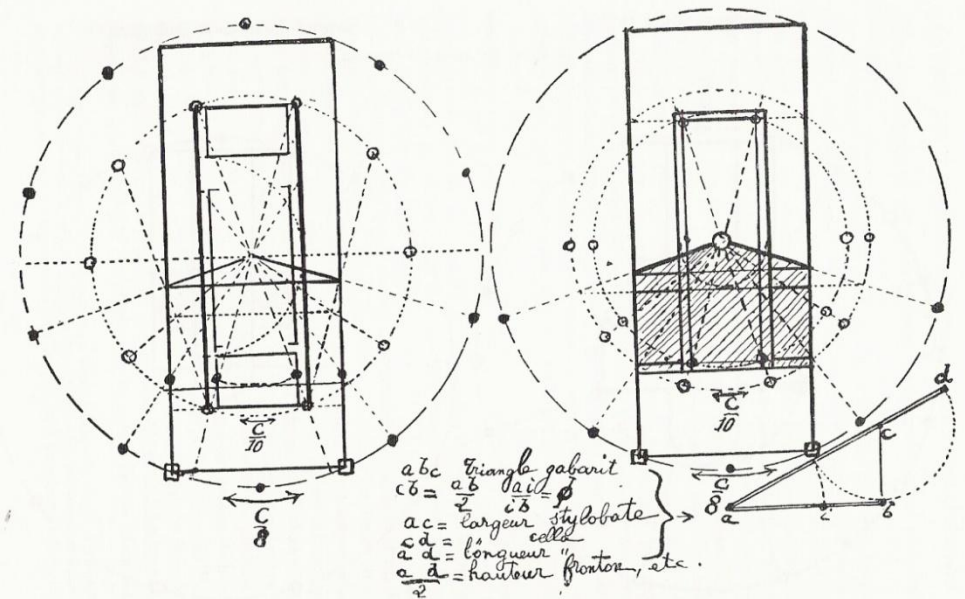 C
10
C
8
C
10
C
8
abc triangle gabarit
cb = ab/2 ai/ib = ϕ
ac = largeur stylobate
cd = " cella
ad = longueur "
ad/2 = hauteur fronton, etc.
a c b
c
d